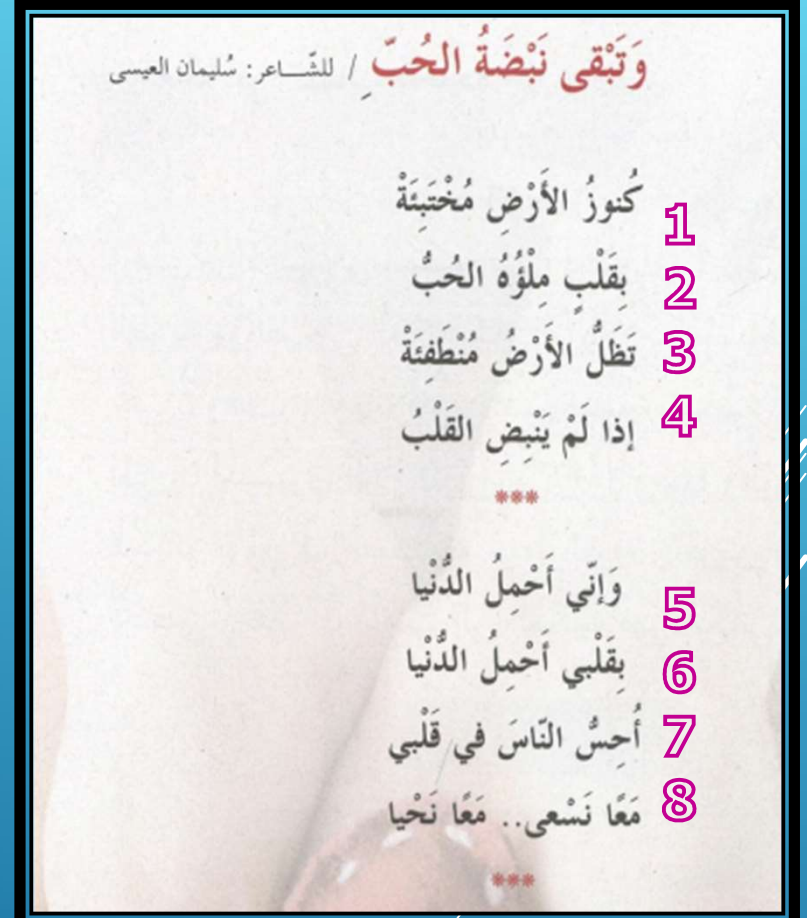 وَتَبْقى نَبْضَةُ الحُبِّ / للشّــاعر: سُليمان العيسى
كُنوزُ الأَرْضِ مُخْتَبِئَةْ 1
بِقَلْبٍ مِلْؤُهُ الحُبُّ 2
تَظَلُّ الأَرْضُ مُنْطَفِئَةْ 3
إذا لَمْ يَنْبِضِ القَلْبُ 4
***
وَإنّي أَحْمِلُ الدُّنْيا 5
بِقَلْبي أَحْمِلُ الدُّنْيا 6
أُحِسُّ النّاسَ في قَلْبي 7
مَعًا نَسْعى.. مَعًا نَحْيا 8
***